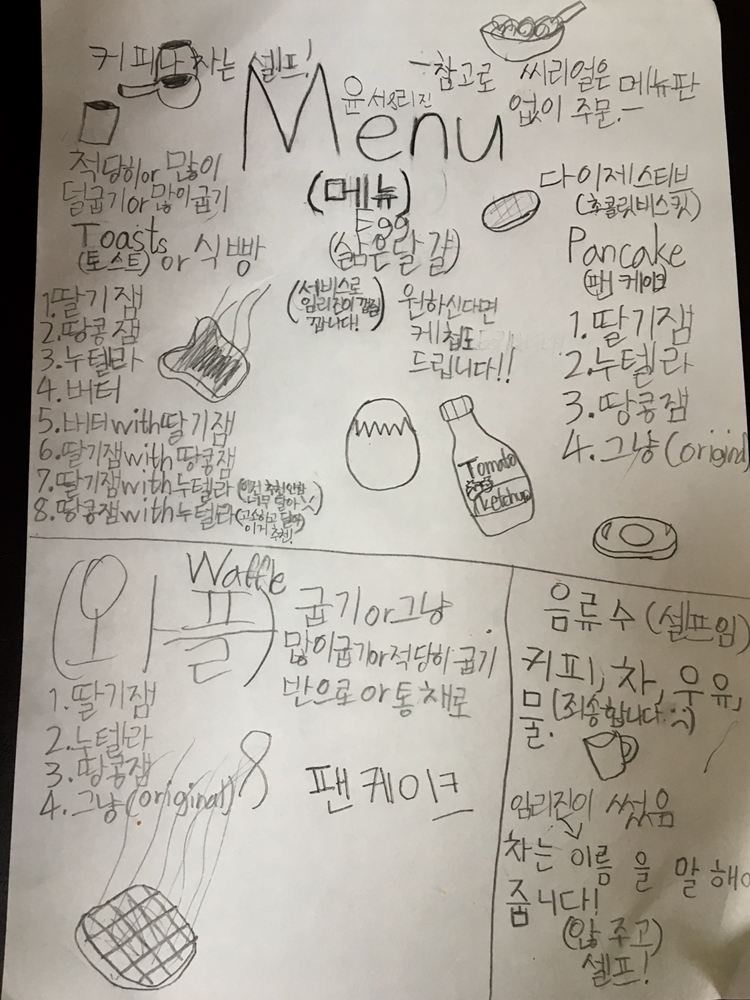 커피나 차는 셀프!
-참고로 씨리얼은 메뉴판
없이 주문.-
윤서&리진
Menu
(메뉴)
적당히or 많이
덜굽기or많이굽기
Toasts or 식빵
(토스트)
1.딸기잼
2.땅콩잼
3.누텔라
4.버터
5.버터with딸기잼
6.딸기잼with땅콩잼
7.딸기잼with누텔라
8.땅콩잼with누텔라(고소하고 달아 이거 추천!)
Egg
(삶은달걀)
(서비스로
임리진이 껍질
깝니다!)
원하신다면
케첩도
드립니다!!
Tomato
ketchup
다이제스티브
(초콜릿비스킷)
Pancake
(팬케이크)
1.딸기잼
2.누텔라
3.땅콩잼
4.그냥(original
Waffle
(와플)
굽기or그냥
많이굽기or적당히굽기
반으로or통채로
1.딸기잼
2.누텔라
3.땅콩잼
4.그냥(original)
& 팬케이크
음류수(셀프임)
커피, 차, 우유,
물.(죄송합니다.:)
임리진이 썼음
차는 이름을 말해
줍니다!
(않주고)
셀프!